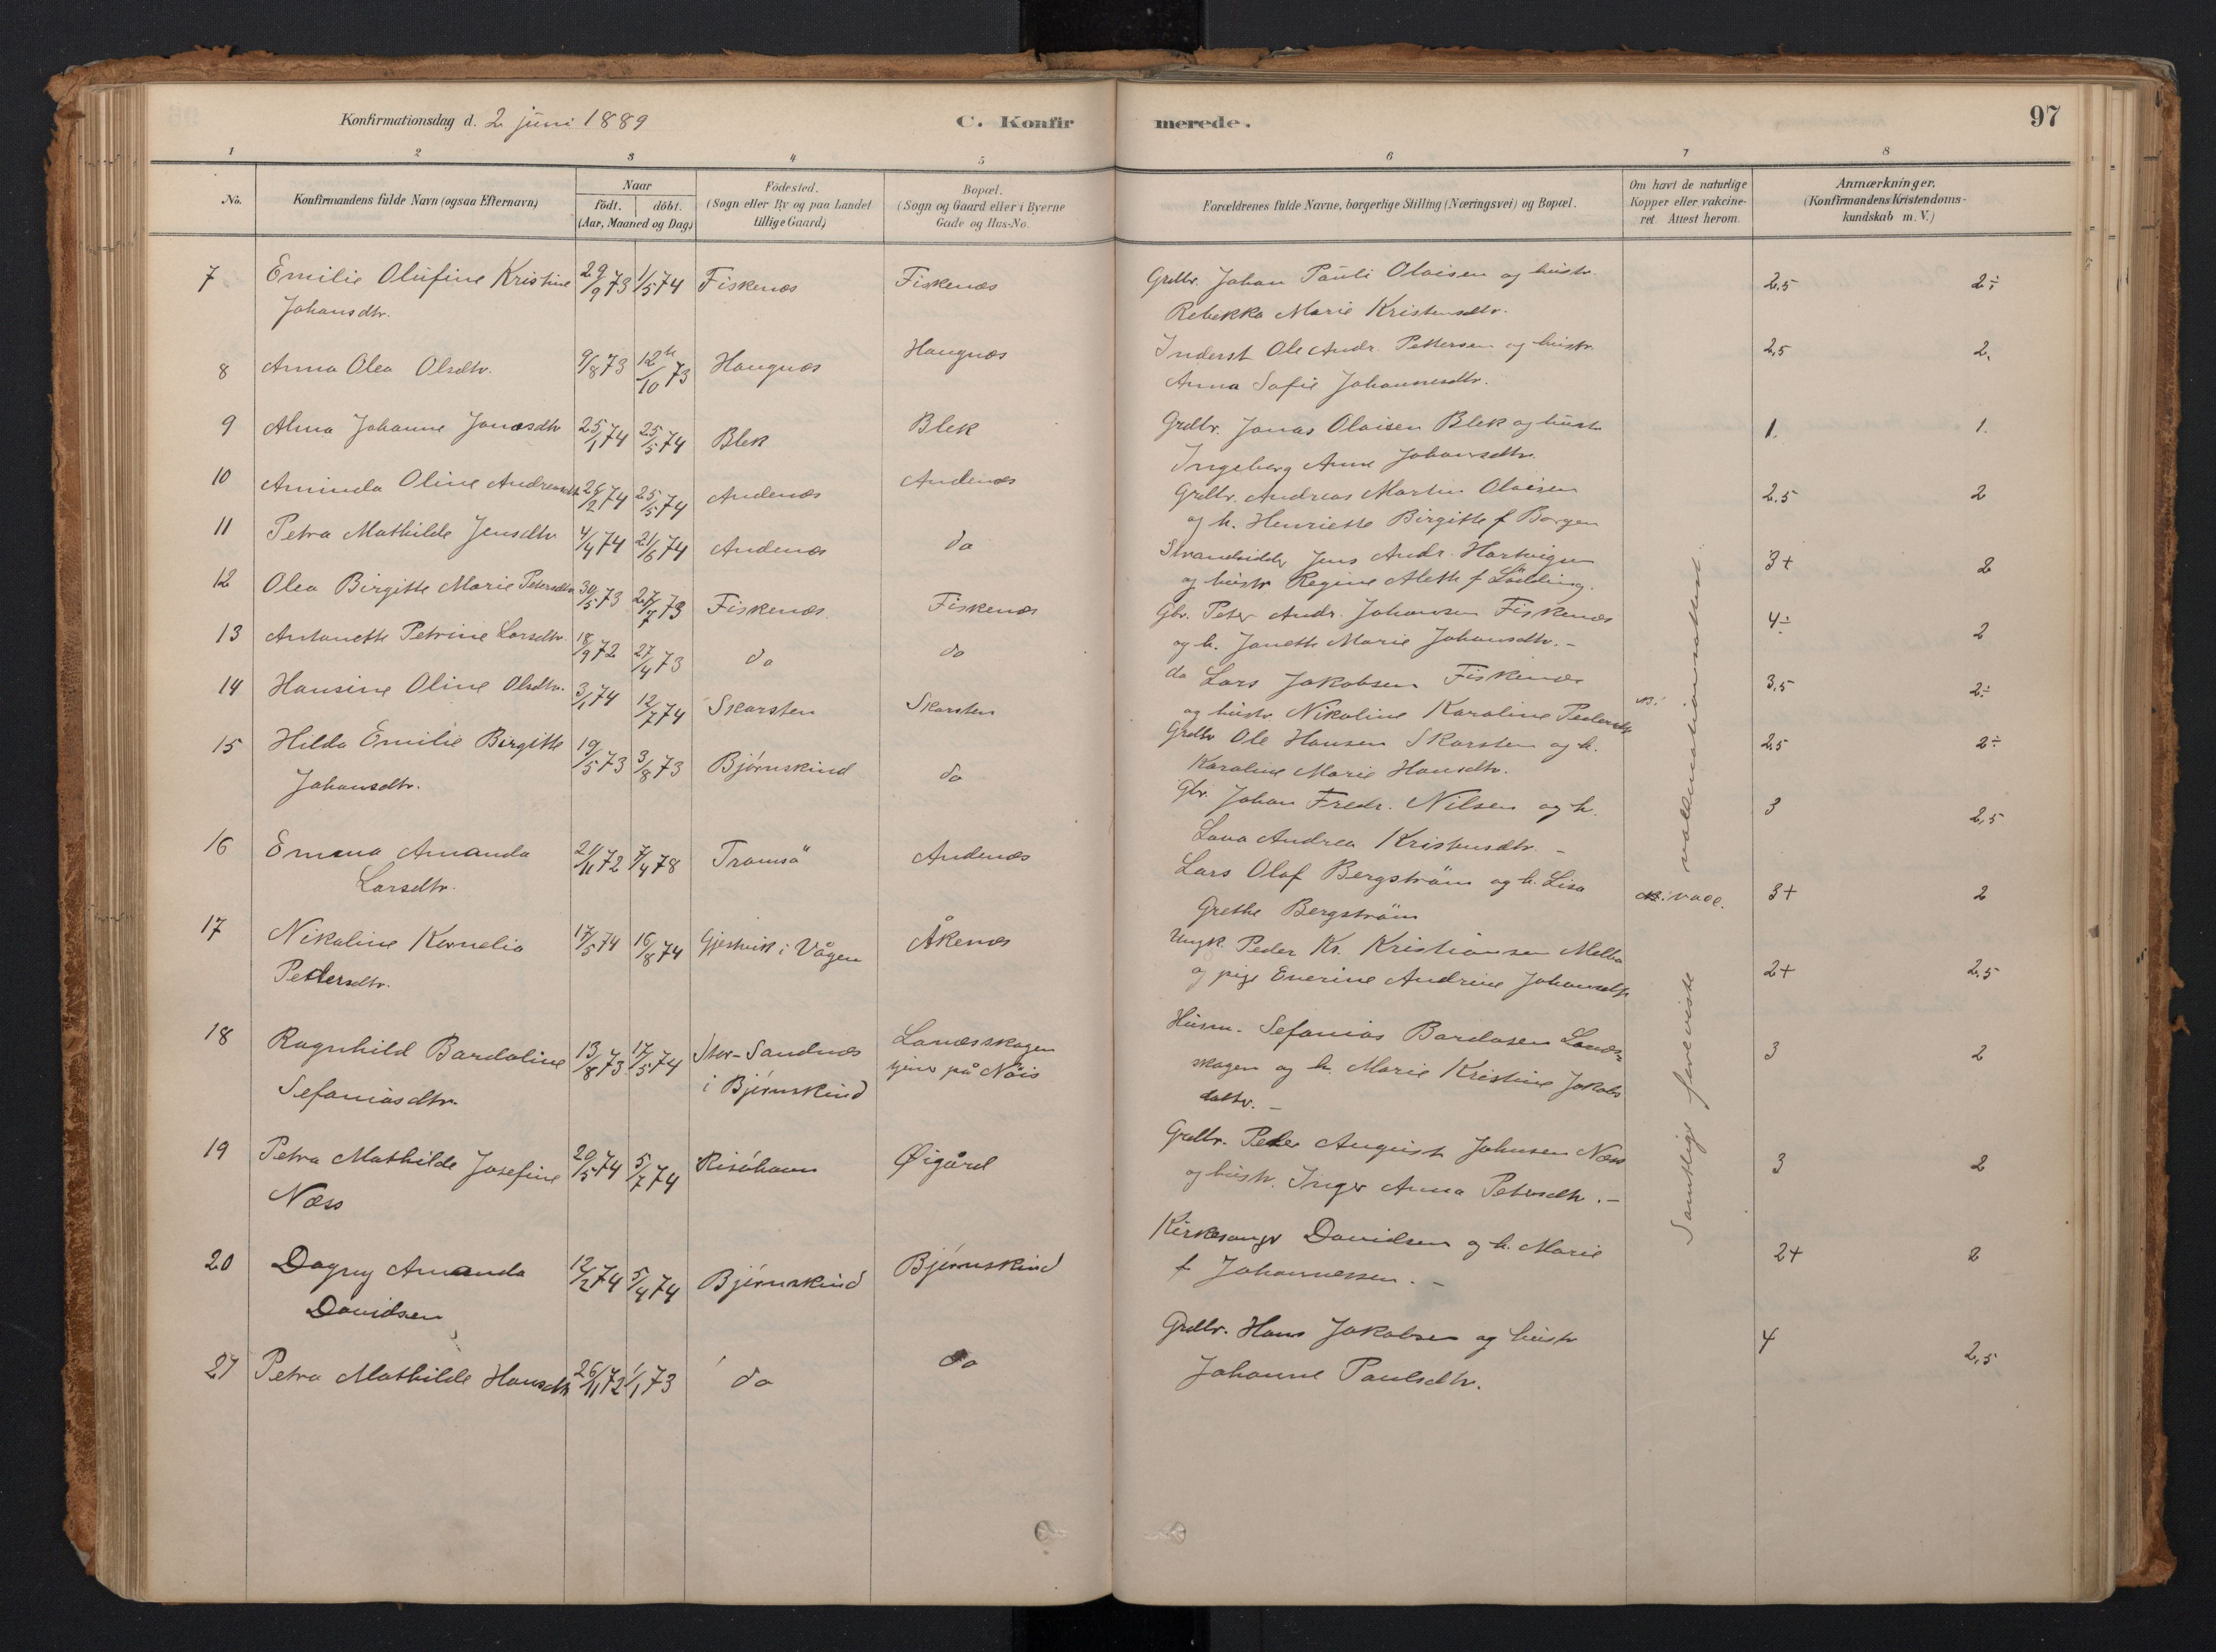 Konfirmationsdag d. 2 juni 1889
C. Konfirmerede.
97
1 2 3 4 5 6 7 8
No.
Konfirmandens fulde Navn (ogsaa Efternavn)
Naar
födt. döbt.
(Aar, Maaned og Dag)
Födested.
(Sogn eller By og paa Landet
tillige Gaard)
Bopæl.
(Sogn og Gaard eller i Byerne
Gade og Hus-No.
Forældrenes fulde Navne, borgerlige Stilling (Næringsvei) og Bopæl.
Om havt de naturlige
Kopper eller vakcine-
ret. Attest herom.
Anmærkninger.
(Konfirmandens Kristendoms-
kundskab m. V.)
7 Emilie Olufine Kristine 29/9 73 1/5 74 Fiskenæs Fiskenæs Grdbr. Johan Pauli Olaisen og hustr. 2.5 2÷
Johansdtr. Rebekka Marie Kristensdtr.
8 Anna Olea Olsdtr. 9/8 73 12/10 73 Haugnæs Haugnæs Inderst Ole Andr. Pettersen og hustr. 2,5 2.
Anna Sofie Johannesdtr.
9 Alma Johanne Jonasdtr 25/1 74 25/5 74 Blek Blek Grdbr. Jonas Olaisen Blek og hustr 1. 1.
Ingeborg Anne Johansdtr.
10 Aminda Oline Andreasdtr 26/2 74 25/5 74 Andenæs Andenæs Grdbr. Andreas Martin Olaisen 2.5 2
og h. Henriette Birgitte f Borgen
11 Petra Mathilde Jensdtr 4/4 74 21/6 74 Andenæs do Strandsidder Jens Andr. Hartvigsen 3+ 2
og hustr Regine Aleth f Lödding.
12 Olea Birgitte Marie Petersdtr 30/5 73 27/7 73 Fiskenæs Fiskenæs Gbr. Peter Andr. Johansen Fiskenæs 4÷ 2
og h. Janette Marie Johansdtr. -
13 Antonette Petrine Larsdtr. 18/9 72 27/4 73 do do do Lars Jakobsen Fiskenæs 3.5 2÷
og hustr. Nikoline Karoline Pedersdtr
14 Hansine Oline Olsdtr. 3/1 74 12/7 74 Skarsten Skarsten Grdbr Ole Hansen Skarsten og h. 2.5 2÷
Karoline Marie Hansdtr.
15 Hilda Emilie Birgitte 19/5 73 3/8 73 Bjørnskind do Gbr. Johan Fredr. Nilsen og h. 3 2,5
Johansdtr. Lava Andrea Kristensdtr. -
16 Emma Amanda 21/11 72 7/4 78 Tromsö Andenæs Lars Olaf Bergström og h. Lisa vacc. 3+ 2
Larsdtr. Grethe Bergström
17 Nikoline Kornelia 17/5 74 16/8 74 Gjestvik i Vågen Åkenæs Ungk. Peder Kr. Kristiansen Melbo 2+ 2,5
Pettersdtr. og pige Enerine Andrine Johansdtr
18 Ragnhild Bardoline 13/8 73 17/5 74 Stor-Sandnæs Lanæsskagen Husm. Sefanias Bardosen Lanæs- 3 2
Sefaniasdtr. i Bjørnskind tjener på Nöis skagen og h. Marie Kristine Jakobs
datter. -
19 Petra Mathilde Josefine 20/5 74 5/7 74 Risöhavn Øigård Grdbr. Peder August Johnsen Næss 3 2
Næss og hustr. Inger Anna Petersdtr. -
20 Dagny Amanda 12/2 74 5/4 74 Bjørnskind Bjørnskind Kirkesanger Davidsen og h. Marie 2+ 2
Davidsen f Johannessen. -
21 Petra Mathilde Hansdtr 26/11 72 1/1 73 do do Grdbr. Hans Jakobsen og hustr 4 2,5
Johanne Paulsdtr.
Samtlige foreviste vaccinationsattest